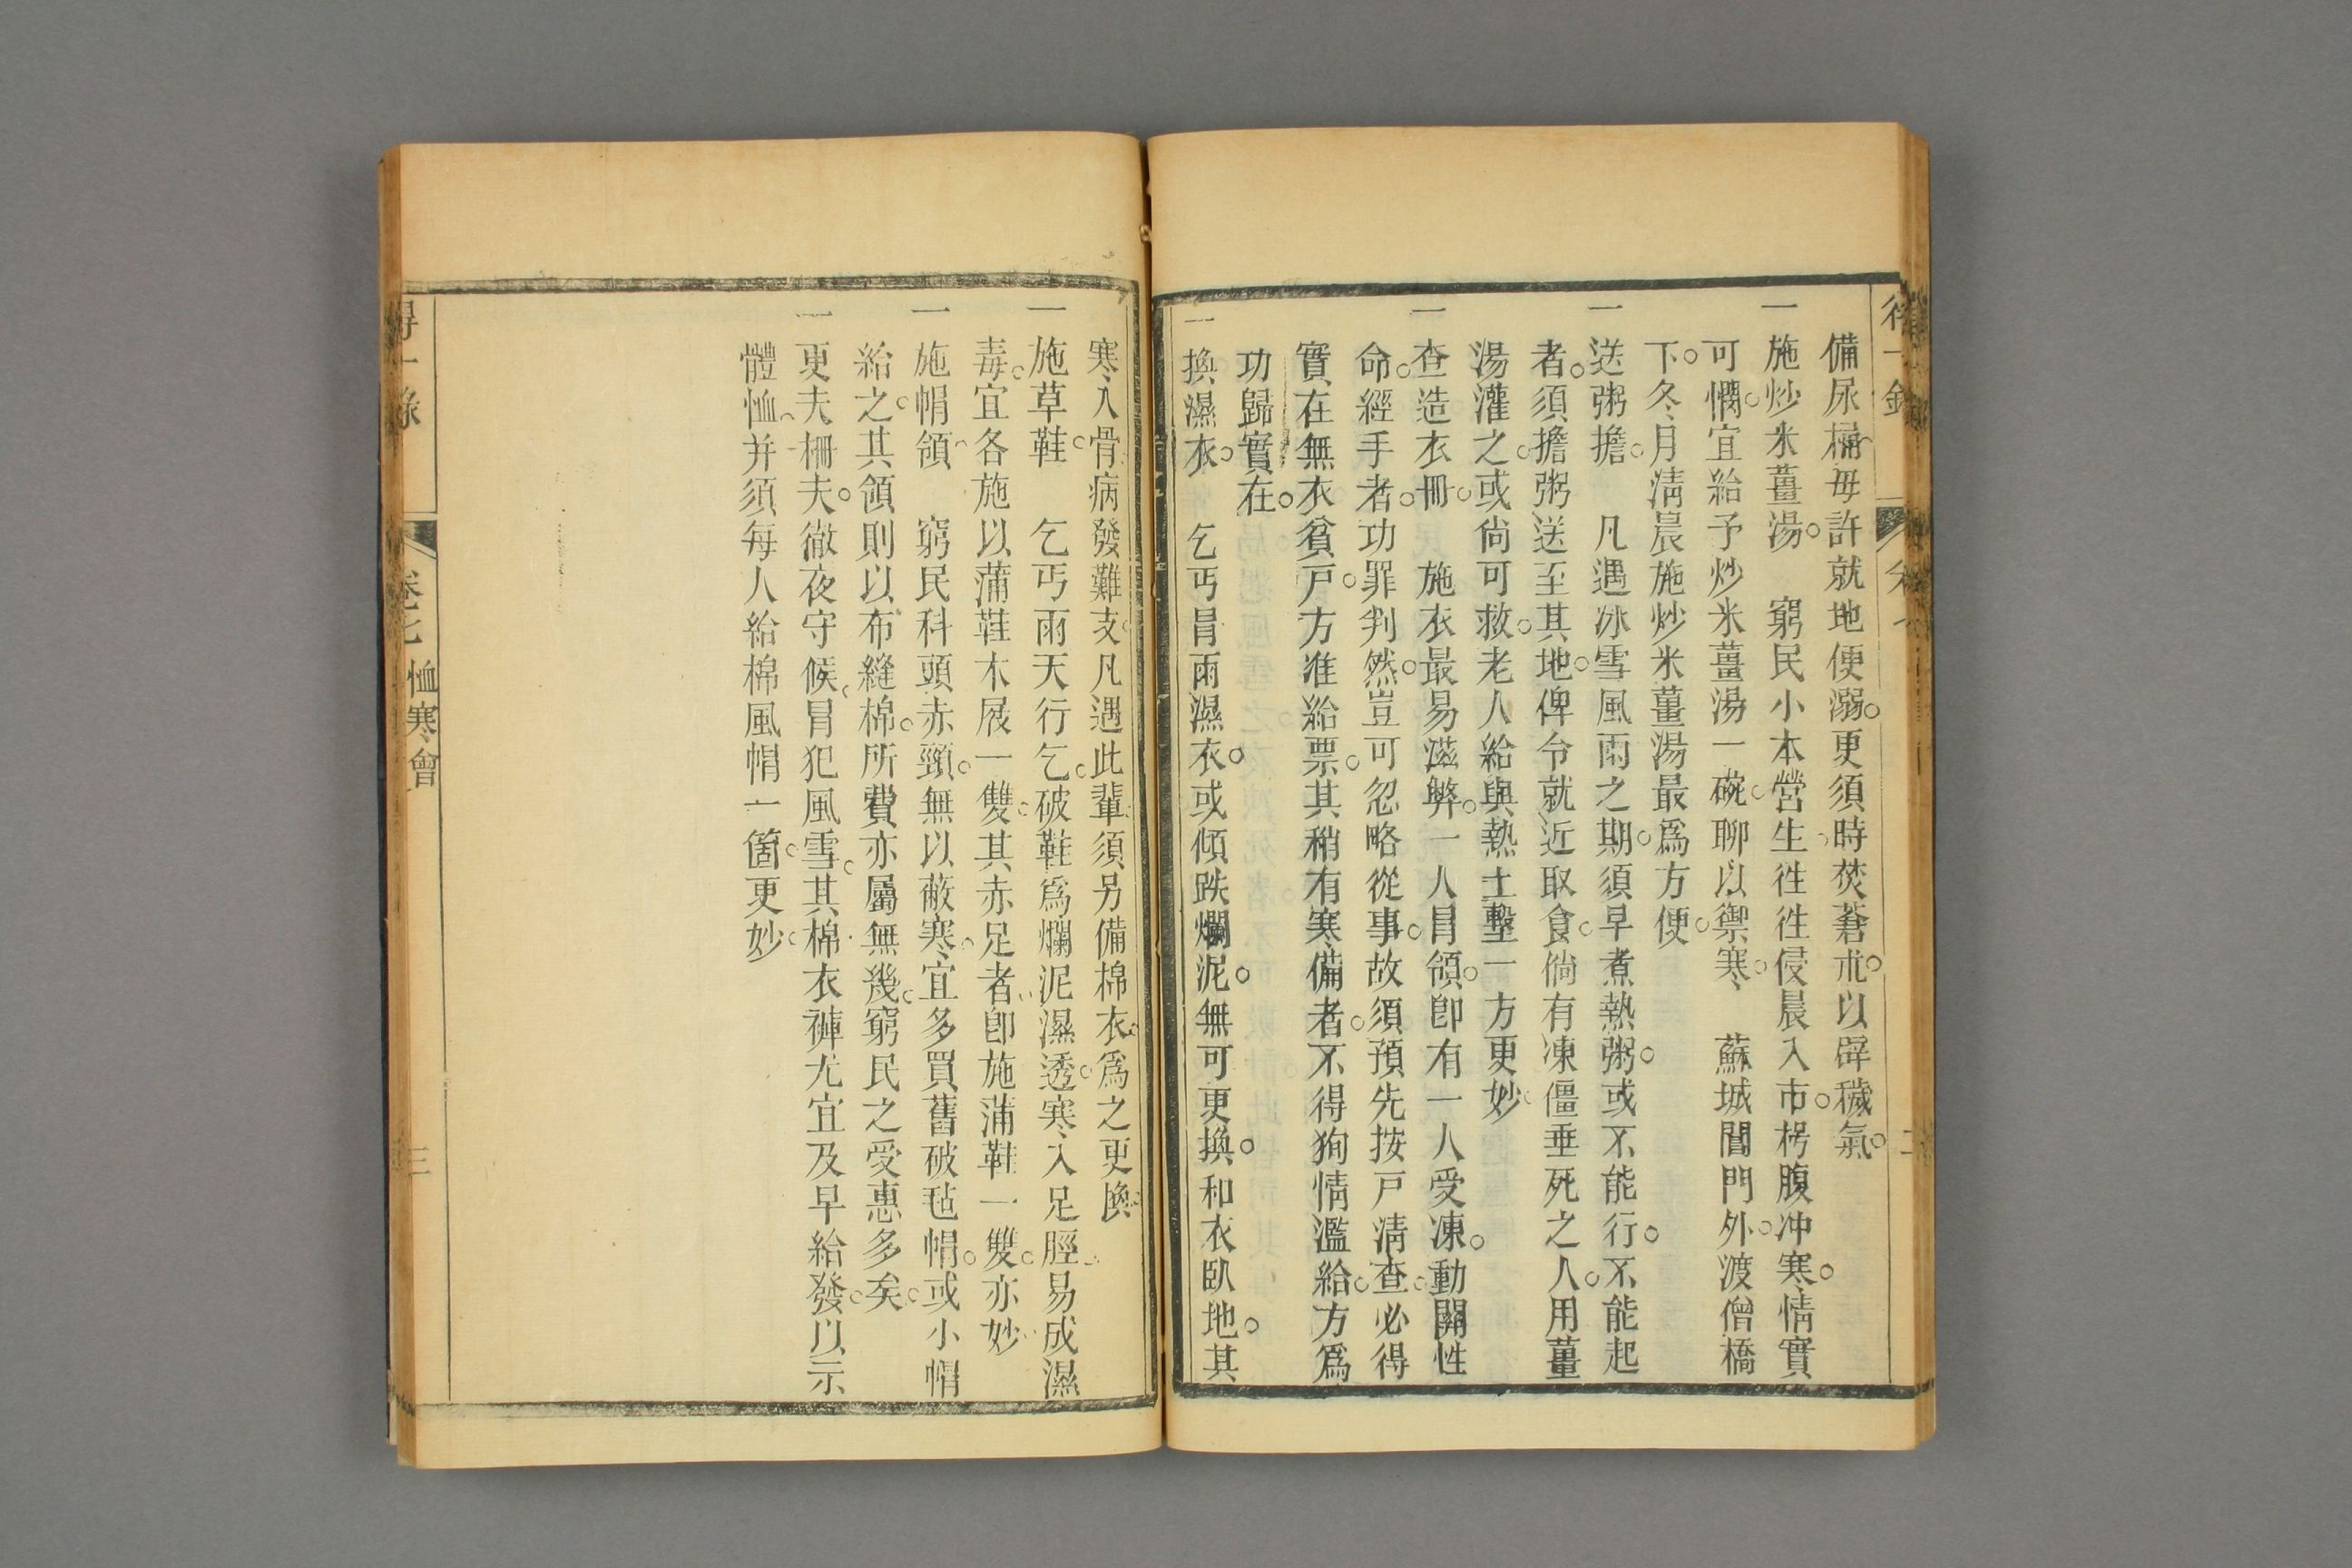 備尿桶毋許就地便溺。更須時焚蒼朮。以辟穢氣。
一施炒米薑湯。　窮民小本營生。徃徃侵晨入市。枵腹冲寒。情實
可憫。宜給予炒米薑湯一碗。聊以禦寒。　蘇城閶門外。渡僧橋
下。冬月淸晨施炒米薑湯最爲方便。
一送粥擔。　凡遇冰雪風雨之期。須早煮熱粥。或不能行。不能起
者。須擔粥送至其地。俾令就近取食。倘有凍僵垂死之人。用薑
湯灌之。或尙可救。老人給與熱土墼一方更妙。
一查造衣冊。　施衣最易滋弊。一人冒領。卽有一人受凍。動關性
命。經手者。功罪判然。豈可忽略從事。故須預先按戸淸查。必得
實在無衣貧戸。方准給票。其稍有寒備者。不得狥情濫給。方爲
功歸實在。
一換濕衣。　乞丐冒雨濕衣。或傾跌爛泥。無可更換。和衣臥地。其
寒入骨病發難支。凡遇此輩。須另備棉衣。爲之更換。
一施草鞋。　乞丐雨天行乞。破鞋爲爛泥濕透。寒入足脛。易成濕
毒。宜各施以蒲鞋木屐一雙。其赤足者。卽施蒲鞋一雙。亦妙。
一施帽領。　窮民科頭赤頸。無以蔽寒。宜多買舊破毡帽。或小帽
給之。其領則以布縫棉。所費亦屬無幾。窮民之受惠多矣。
一更夫柵夫。徹夜守候。冒犯風雪。其棉衣褲尤宜及早給發。以示
體恤。并須每人給棉風帽一箇。更妙。
得一錄　卷七　恤寒會　三